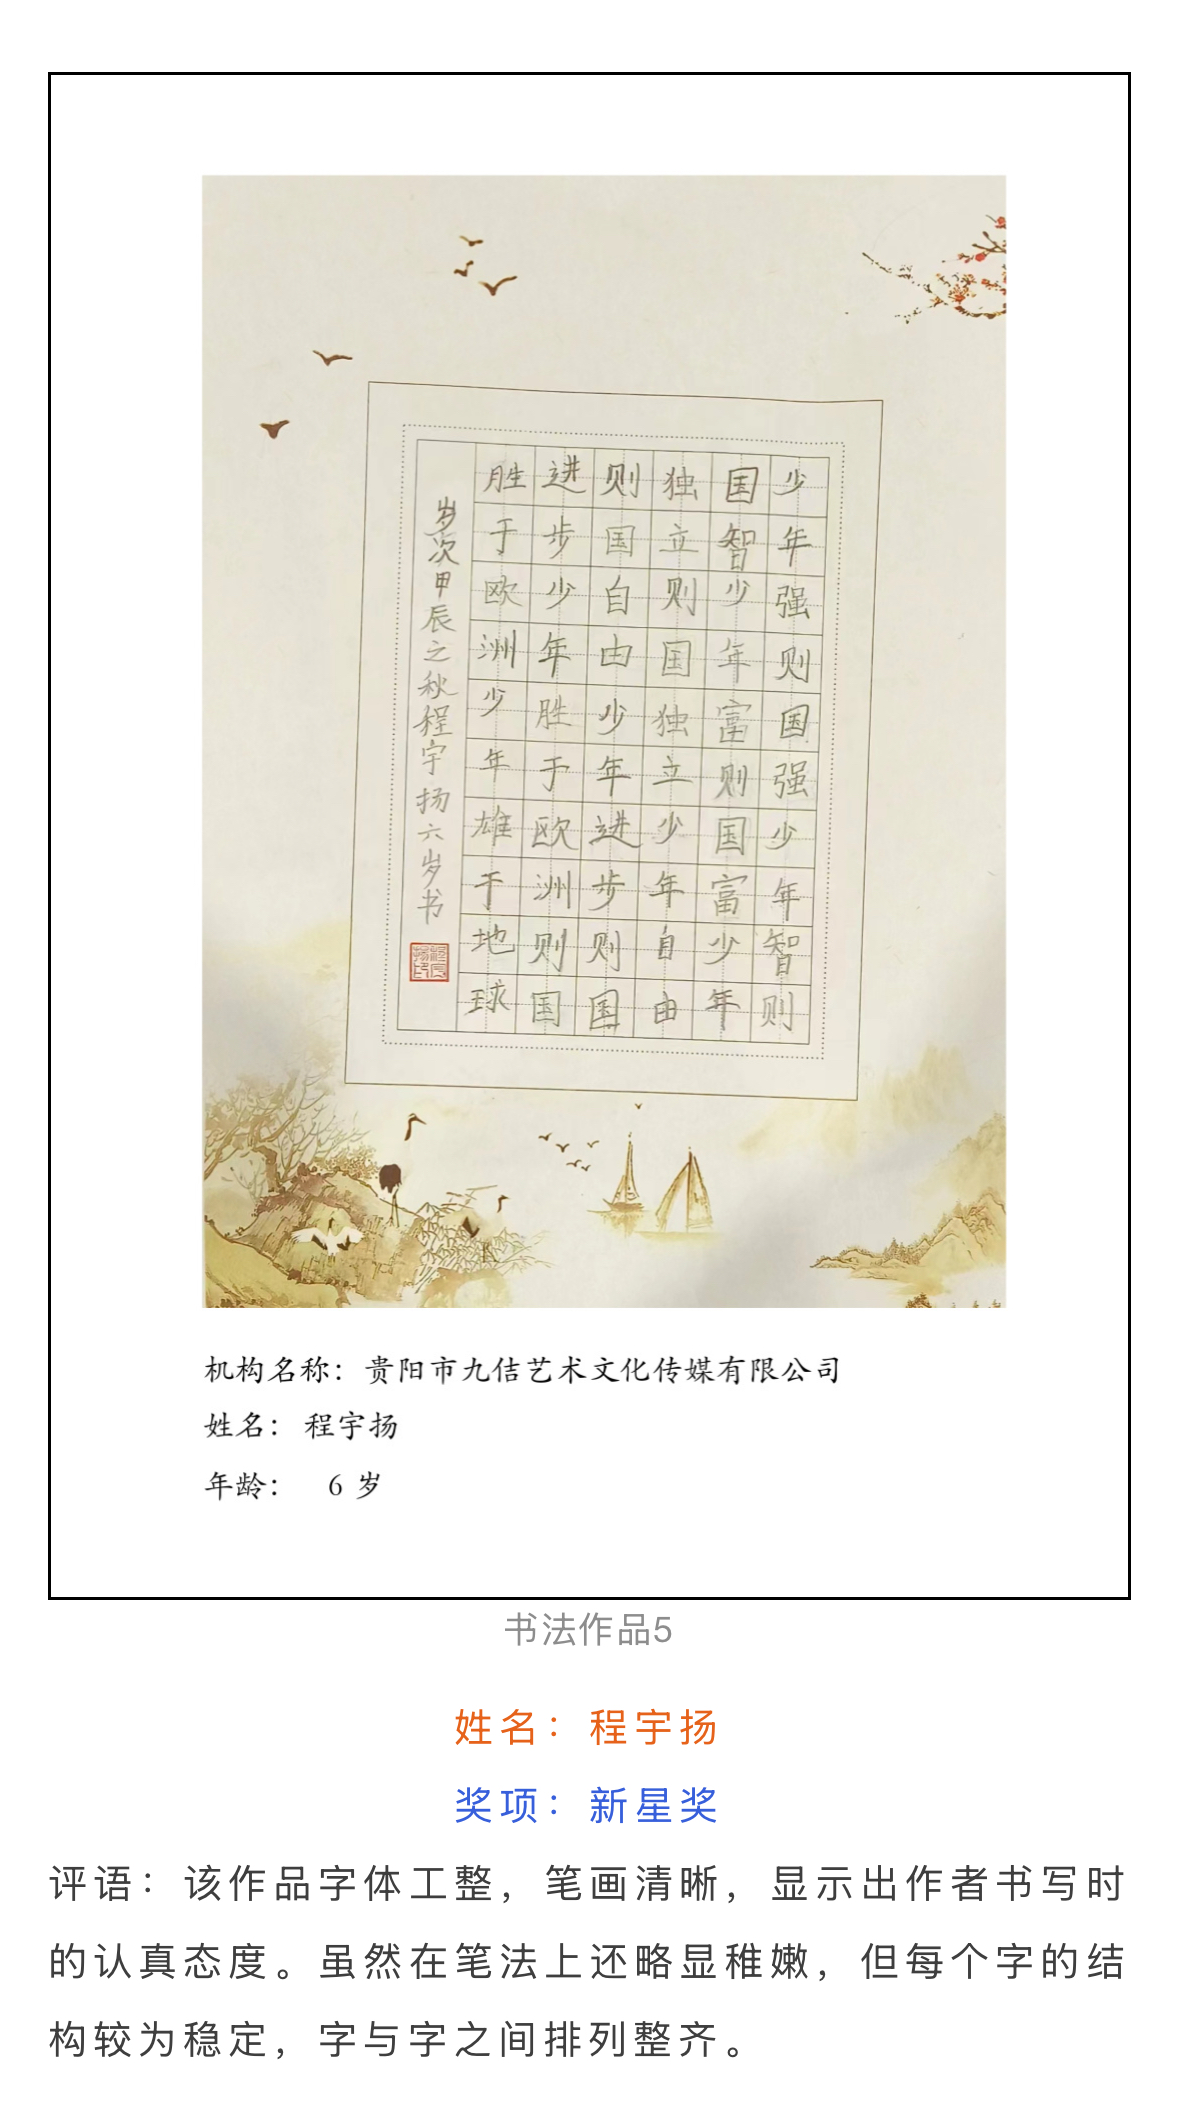 少年强则国强少年智则
国智少年富则国富少年
独立则国独立少年自由
则国自由少年进步则国
进步少年胜于欧洲则国
胜于欧洲少年雄于地球
岁次甲辰之秋程宇扬六岁书
机构名称：贵阳市九佶艺术文化传媒有限公司
姓名：程宇扬
年龄： 6 岁
书法作品5
姓名：程宇扬
奖项：新星奖
评语：该作品字体工整，笔画清晰，显示出作者书写时
的认真态度。虽然在笔法上还略显稚嫩，但每个字的结
构较为稳定，字与字之间排列整齐。